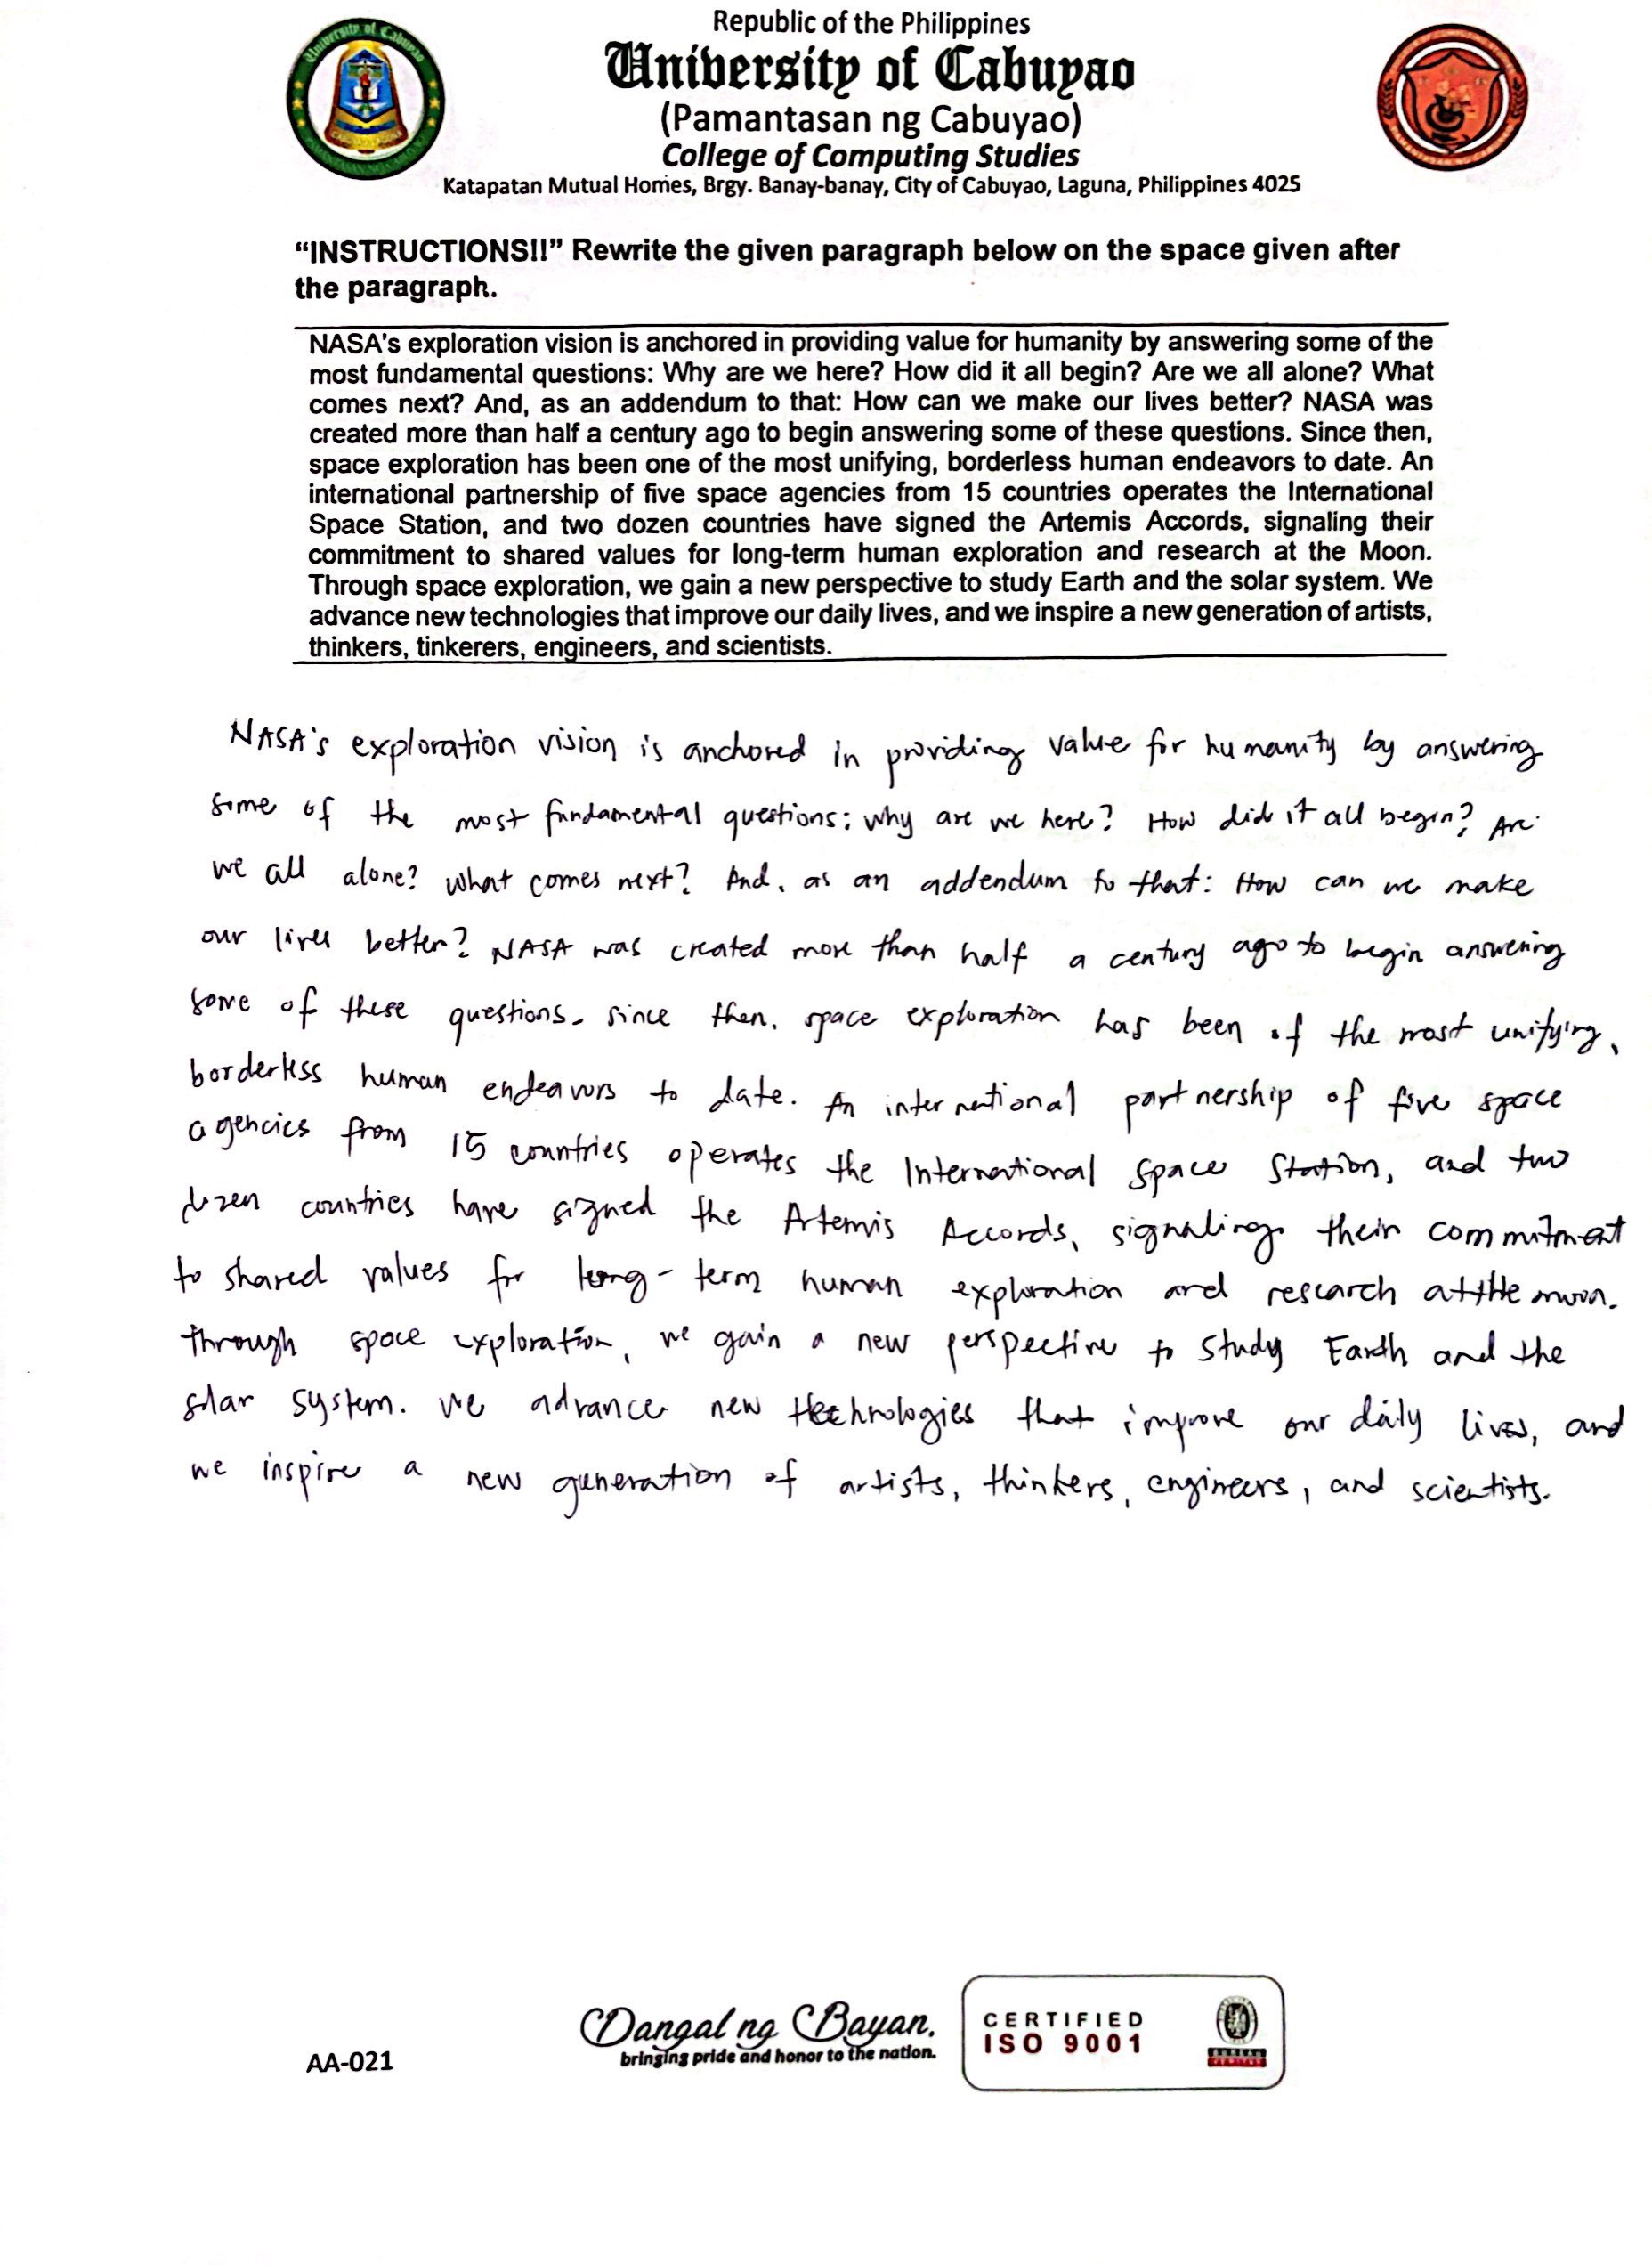 University of Cabuyao
Republic of the Philippines
University of Cabuyao
(Pamantasan ng Cabuyao)
College of Computing Studies
Katapatan Mutual Homes, Brgy. Banay-banay, City of Cabuyao, Laguna, Philippines 4025
“INSTRUCTIONS!!” Rewrite the given paragraph below on the space given after
the paragraph.
NASA's exploration vision is anchored in providing value for humanity by answering some of the
most fundamental questions: Why are we here? How did it all begin? Are we all alone? What
comes next? And, as an addendum to that: How can we make our lives better? NASA was
created more than half a century ago to begin answering some of these questions. Since then,
space exploration has been one of the most unifying, borderless human endeavors to date. An
international partnership of five space agencies from 15 countries operates the International
Space Station, and two dozen countries have signed the Artemis Accords, signaling their
commitment to shared values for long-term human exploration and research at the Moon.
Through space exploration, we gain a new perspective to study Earth and the solar system. We
advance new technologies that improve our daily lives, and we inspire a new generation of artists,
thinkers, tinkerers, engineers, and scientists.
NASA's exploration vision is anchored in providing value for humanity by answering
some of the most fundamental questions: why are we here? How did it all begin? Are
we all alone? What comes next? And, as an addendum to that: How can we make
our lives better? NASA was created more than half a century ago to begin answering
some of these questions. since then, space exploration has been of the most unifying,
borderless human endeavors to date. An international partnership of five space
agencies from 15 countries operates the International Space Station, and two
dozen countries have signed the Artemis Accords, signaling their commitment
to shared values for long-term human exploration and research at the moon.
through space exploration, we gain a new perspective to study Earth and the
solar system. We advance new technologies that improve our daily lives, and
we inspire a new generation of artists, thinkers, engineers, and scientists.
AA-021
Dangal ng Bayan.
bringing pride and honor to the nation.
CERTIFIED
ISO 9001